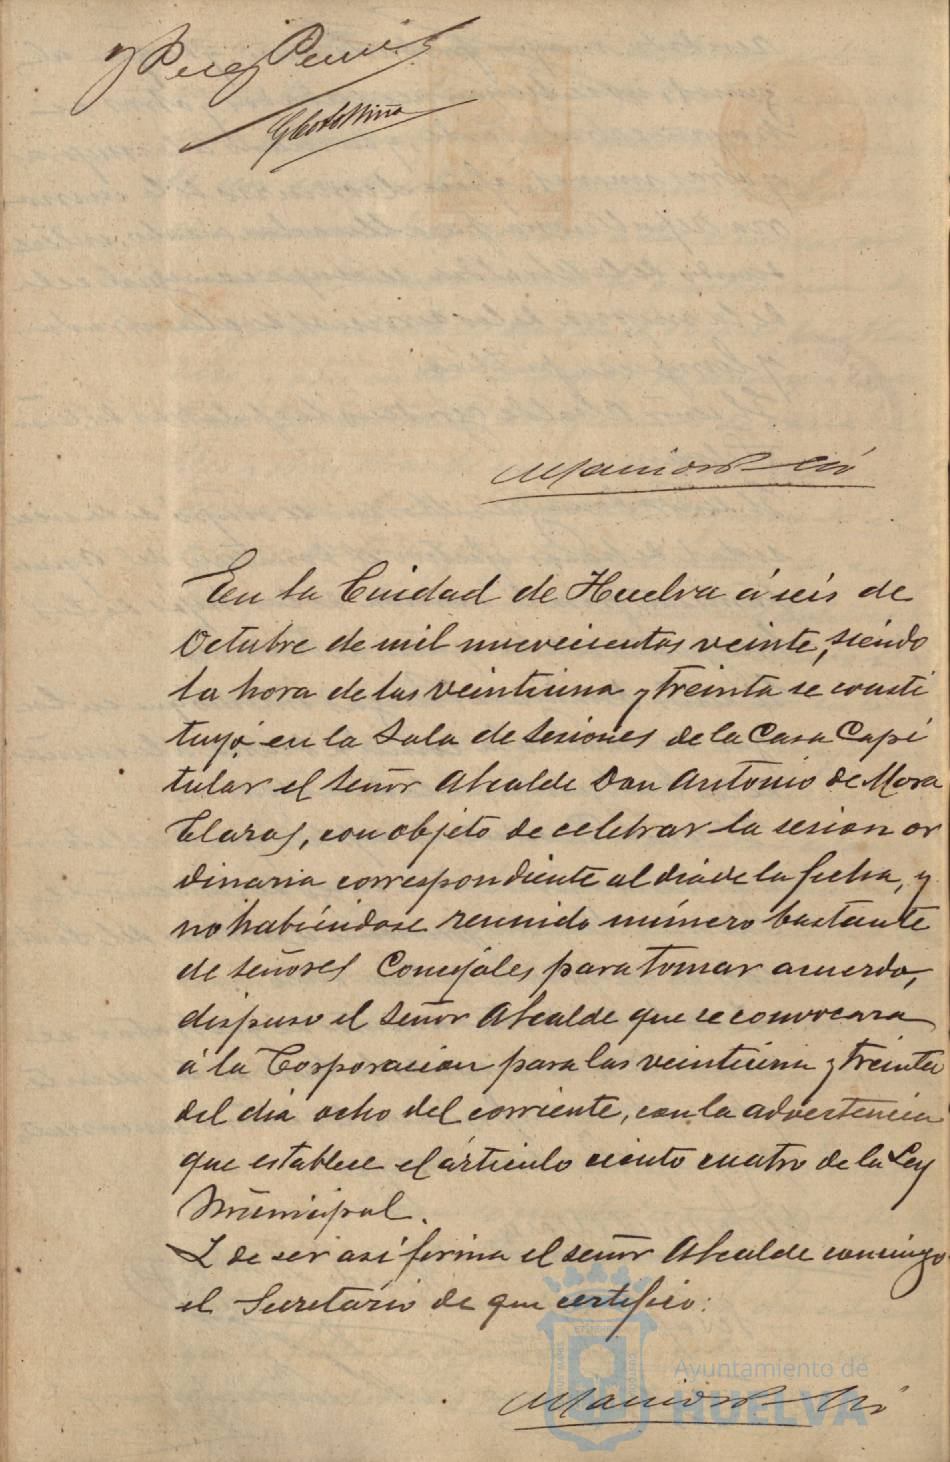 En la Ciudad de Huelva á seis de
Octubre de mil novecientos veinte, siendo
la hora de las veintiuna y treinta se consti
tuyó en la Sala de Sesiones de la Casa Capi
tular el Señor Alcalde Don Antonio de Mora
Claros, con objeto de celebrar la sesion or
dinaria correspondiente al dia de la fecha, y
no habiendose reunido número bastante
de señores Concejales para tomar acuerdo,
dispuso el Señor Alcalde que se convocara
á la Corporacion para las veintiuna y treinta
del dia ocho del corriente, con la advertencia
que establece el artículo ciento cuatro de la Ley
Municipal.
Y de ser así firma el señor Alcalde conmigo
el Secretario de que certifico:
Ayuntamiento de
HUELVA